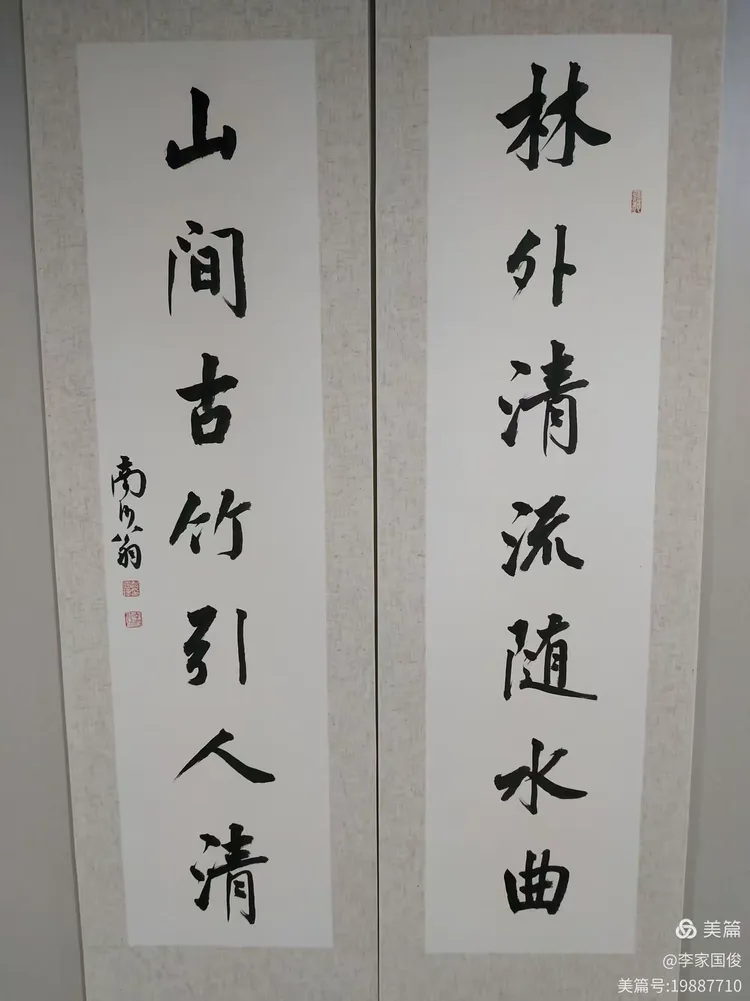 林外清流随水曲
山间古竹引人清
美篇
@李家国俊
美篇号:19887710